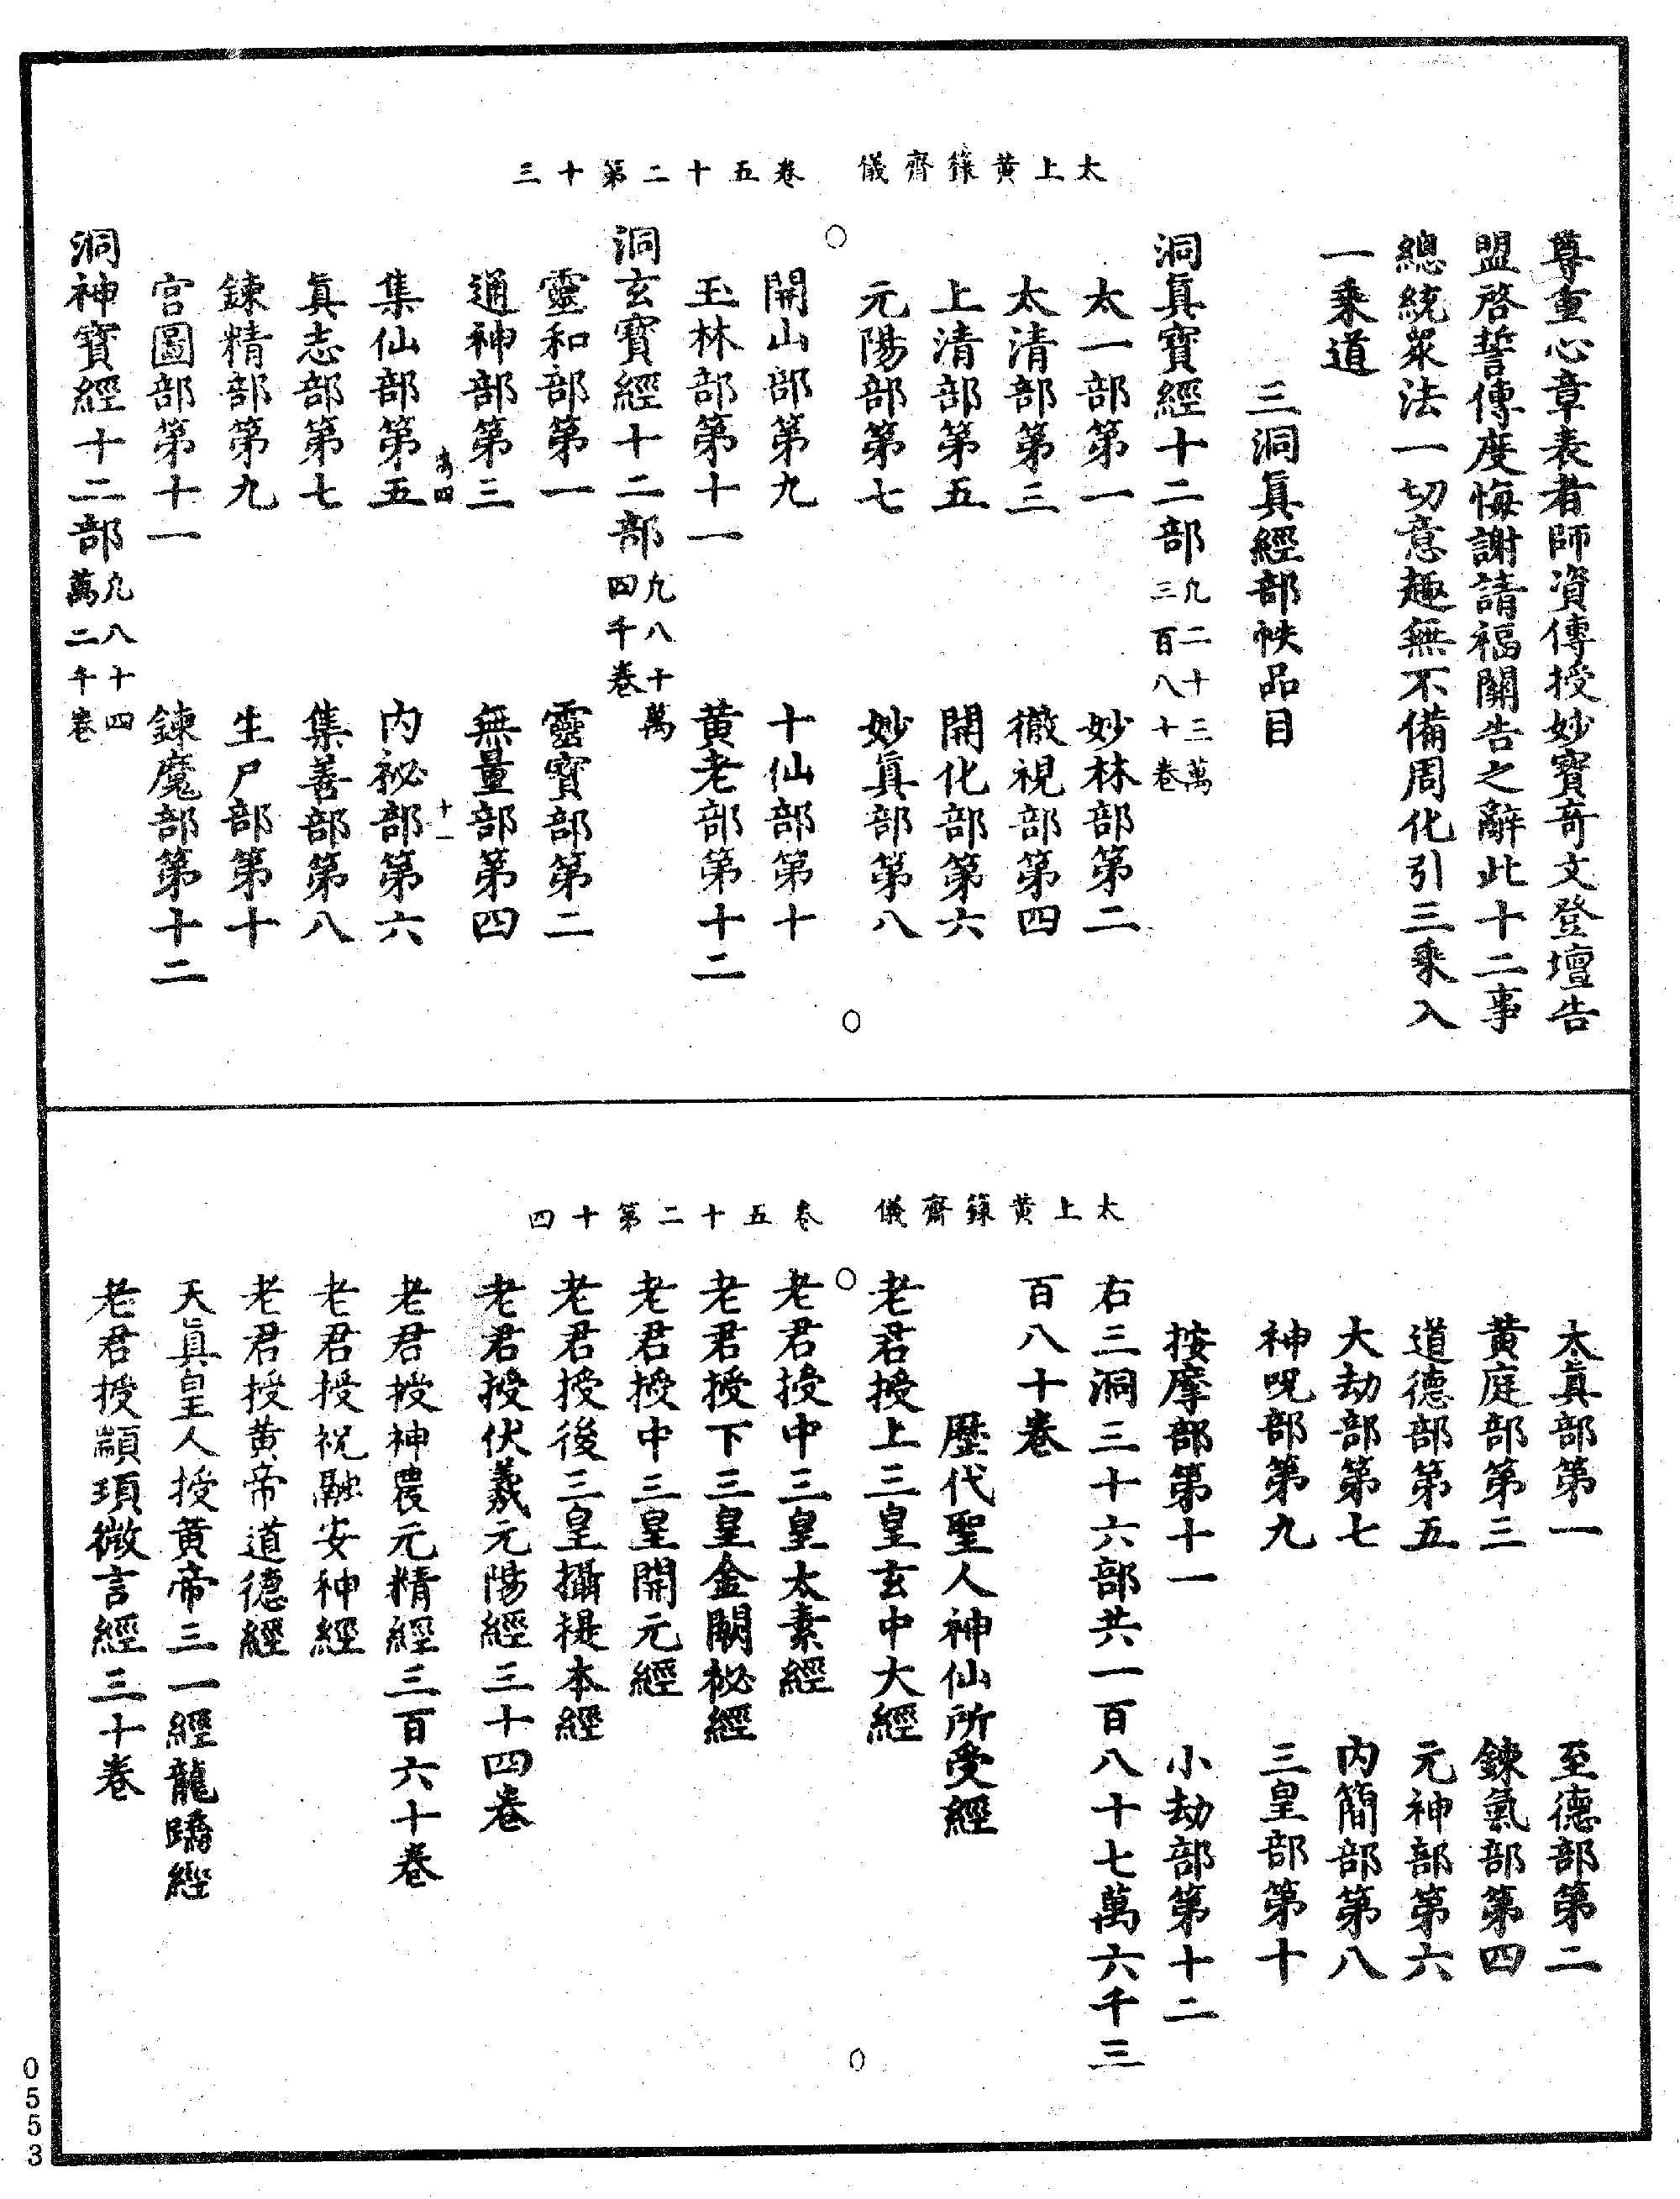 太上黃籙齋儀　卷五十二第十三
尊重心章表者師資傳授妙寶奇文登壇告
盟啓誓傳度悔謝請福關告之辭此十二事
總統衆法一切意趣無不備周化引三乘入
一乘道
三洞眞經部帙品目
洞眞寶經十二部凡二十三萬三百八十卷
太一部第一　妙林部第二
太清部第三　徹視部第四
上清部第五　開化部第六
元陽部第七　妙眞部第八
開山部第九　十仙部第十
玉林部第十一　黃老部第十二
洞玄寶經十二部凡八十萬四千卷
靈和部第一　靈寶部第二
通神部第三　無量部第四
十一
集仙部第五　內祕部第六
眞志部第七　集善部第八
鍊精部第九　生尸部第十
宮圖部第十一　鍊魔部第十二
洞神寶經十二部凡八十四萬二千卷
太上黃籙齋儀　卷五十二第十四
太眞部第一　至德部第二
黃庭部第三　鍊氣部第四
道德部第五　元神部第六
大劫部第七　內簡部第八
神呪部第九　三皇部第十
按摩部第十一　小劫部第十二
右三洞三十六部共一百八十七萬六千三
百八十卷
歷代聖人神仙所受經
老君授上三皇玄中大經
老君授中三皇太素經
老君授下三皇金闕祕經
老君授中三皇開元經
老君授後三皇攝提本經
老君授伏羲元陽經三十四卷
老君授神農元精經三百六十卷
老君授祝融安神經
老君授黃帝道德經
天眞皇人授黃帝三一經龍蹻經
老君授顓頊微言經三十卷
0553